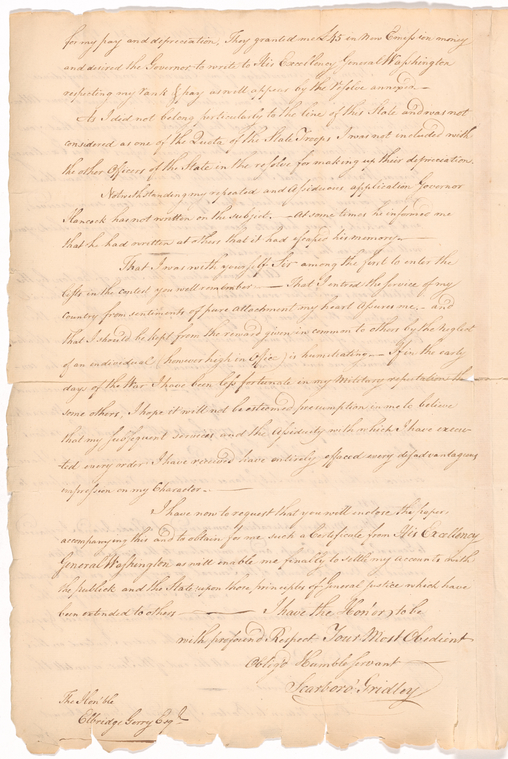 for my pay and depreciation. They granted me £45 in New Emission money
and desired the Governor to write to His Excellency General Washington
respecting my rank & pay as well appears by the resolve annexed—
As I did not belong particularly to the line of this State and was not
considered as one of the Quota of the State Troops I was not included with
the other Officers of the State in the resolve for making up their depreciation.
Notwithstanding my repeated and assiduous application Governor
Hancock has not written on the subject. — At some times he informs me
that he had written at others that it had escaped his memory. —
That I was with yourself Sir among the first to enter the
lists in the contest you well remember — That I entered the service of my
Country from sentiments of pure attachment my heart assures me — and
that I should be kept from the reward given in common to others by the neglect
of an individual (however high in Office) is humiliating — If in the early
days of the War I have been less fortunate in my Military reputation than
some others, I hope it will not be esteemed presumption in me to believe
that my subsequent services, and the assiduity with which I have execu-
ted every order I have received have entirely effaced every disadvantageous
impression on my Character. —
I have now to request that you will inclose the paper
accompanying this and to obtain for me such a Certificate from His Excellency
General Washington as will enable me finally to settle my accounts with
the publick and the State upon those principles of General justice which have
been extended to others — I have the Hon'or to be
with profound Respect Your Most Obedient
Oblig'd Humble Servant
Scarboro' Gridley
The Hon'ble
Elbridge Gerry Esqr.